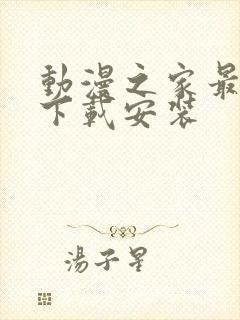 動漫之家最
下載安裝
湯子星